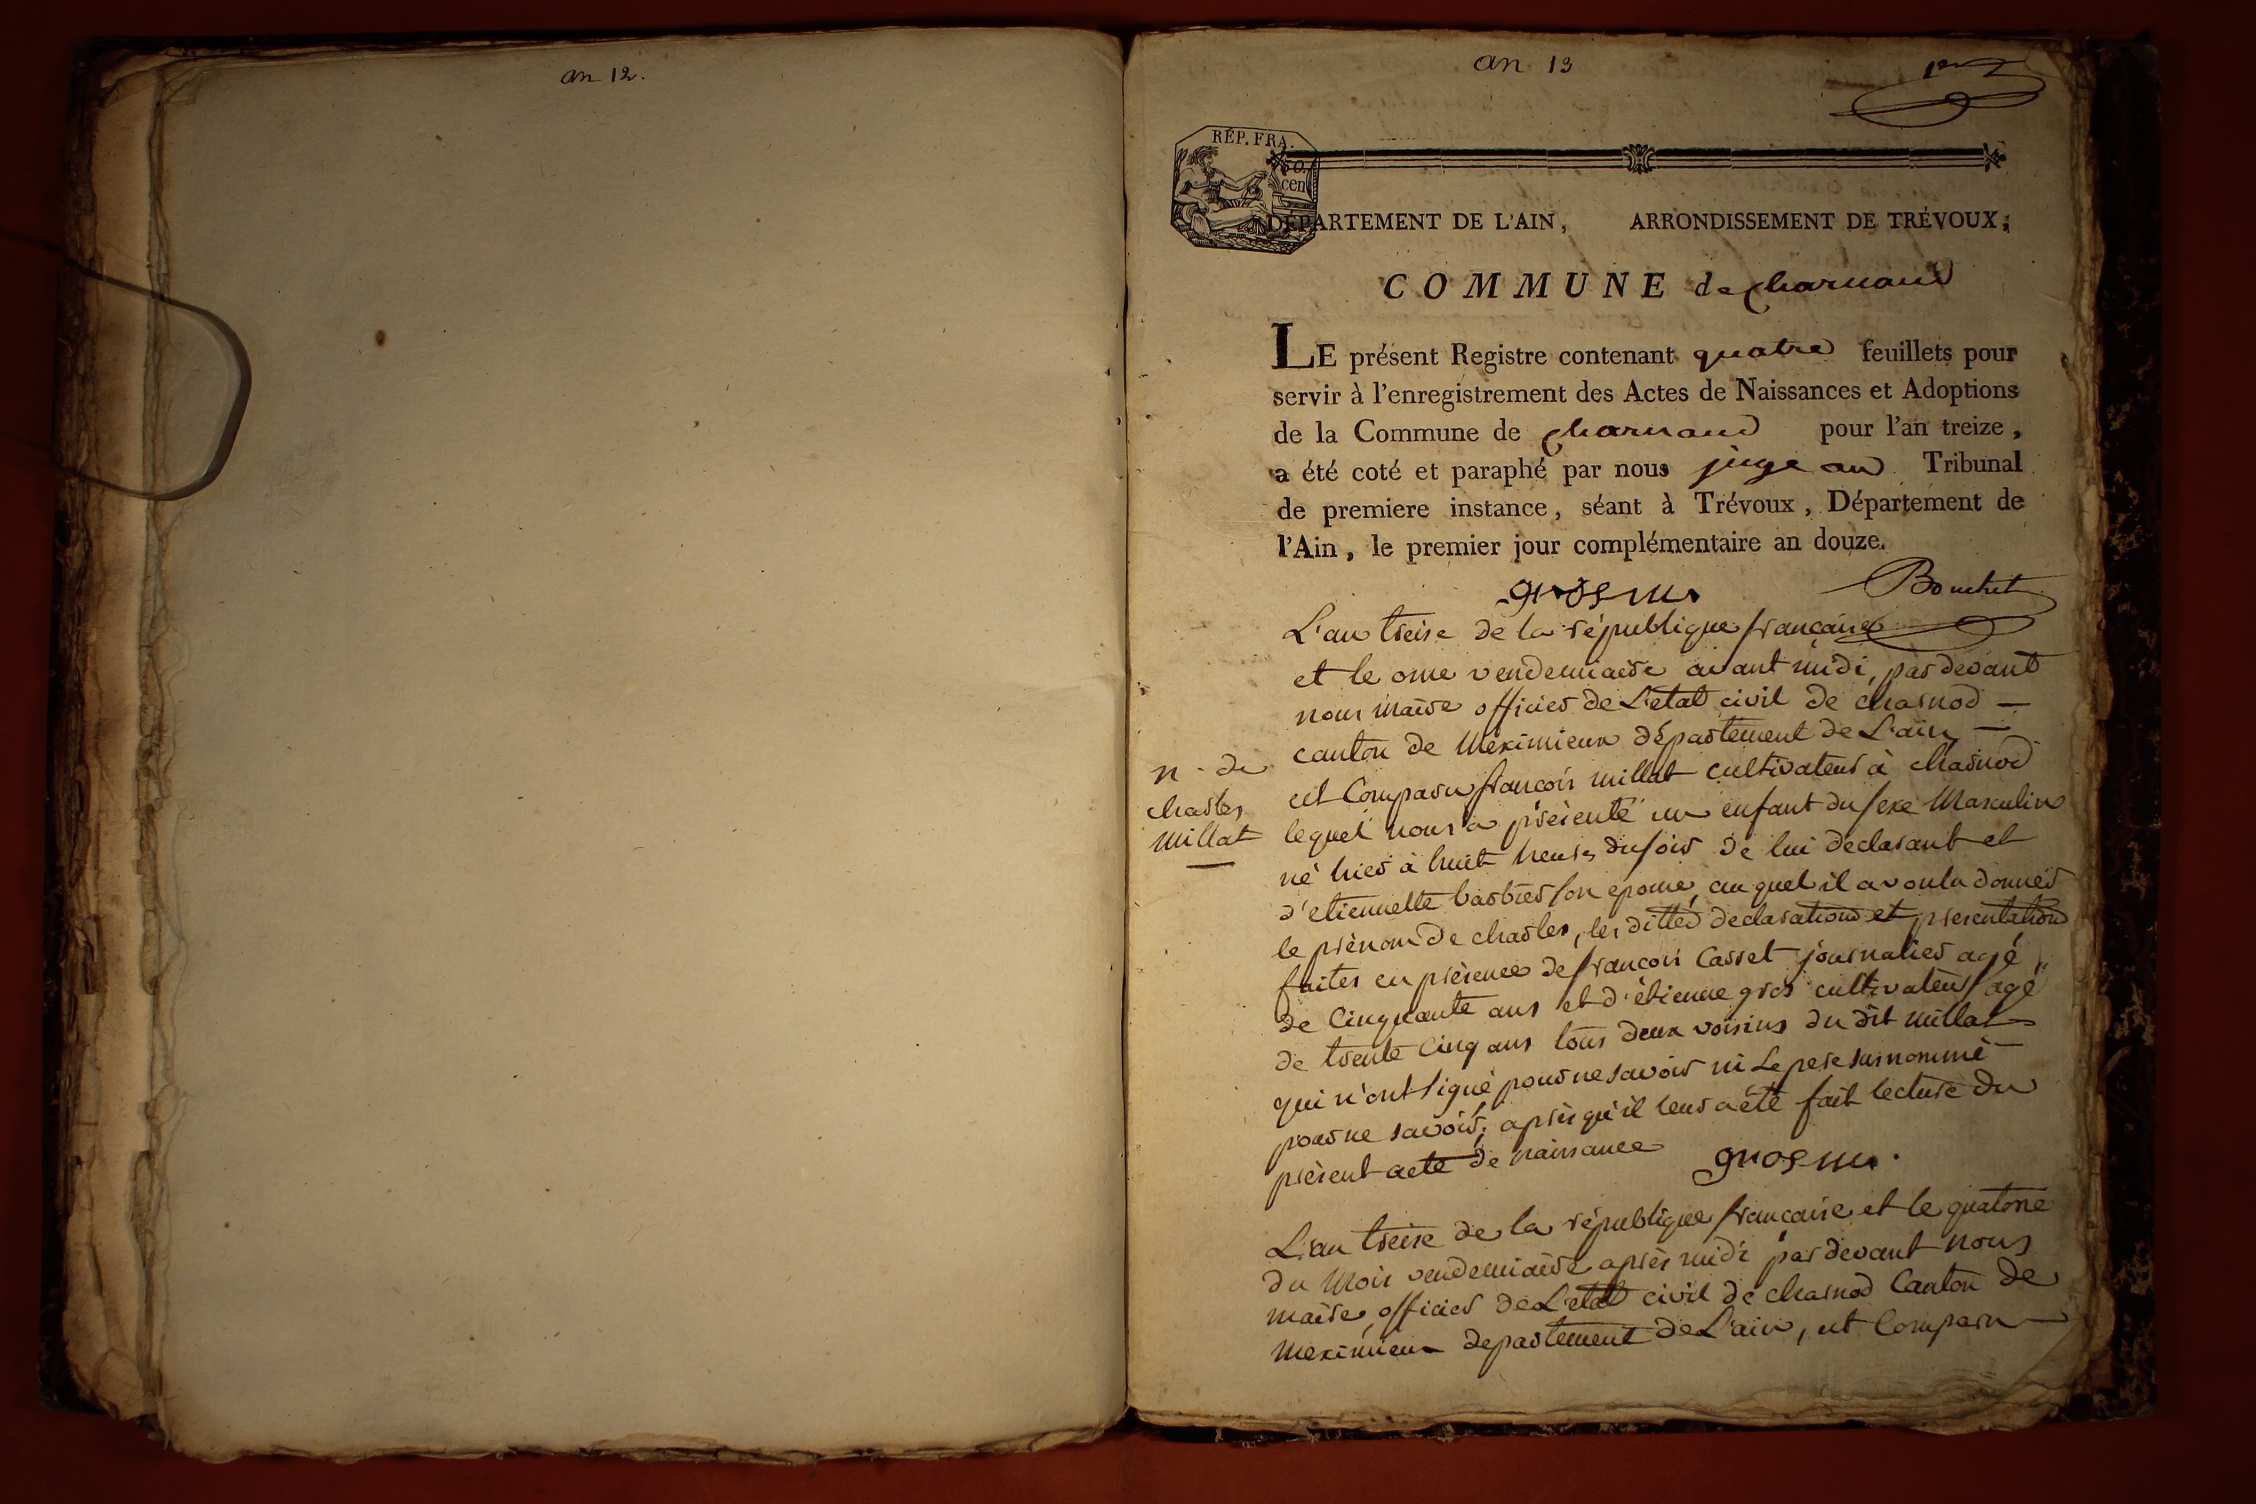 an 12.
an 13
1er
RÉP. FRA.
50.
cen
DÉPARTEMENT DE L'AIN, ARRONDISSEMENT DE TRÉVOUX;
COMMUNE de Charnaud
LE présent Registre contenant quatre feuillets pour
servir à l'enregistrement des Actes de Naissances et Adoptions
de la Commune de Charnaud pour l'an treize,
a été coté et paraphé par nous juge au Tribunal
de premiere instance, séant à Trévoux, Département de
l'Ain, le premier jour complémentaire an douze.
gros m. Bouchet
L'an treise de la république française
et le onze vendemiaire avant midi, par devant
nous maire officier de L'etat civil de charnod —
canton de Meximieux département de L'ain —
est Comparu françois millat cultivateur à charnod
n. de
charles
Millat
lequel nous a présenté un enfant du sexe Masculin
né hier à huit heures du soir de lui declarant et
d'etiennette barbier son epouse, au quel il a voulu donner
le prénom de charles, les dittes declarations et presentations
faites en présence de françois Casset journalier agé
de Cinquante ans et d'étienne gros cultivateur agé
de trente cinq ans tous deux voisins du dit millat
qui n'ont signé pour ne savoir ni Le pere surnommé
pour ne savoir, après qu'il leur a été fait lecture du
présent acte de naissance gros m.
L'an treise de la république française et le quatorze
du Mois vendemiaire après midi par devant nous
maire, officier de L'etat civil de charnod Canton de
Meximieux departement de L'ain, est Comparu